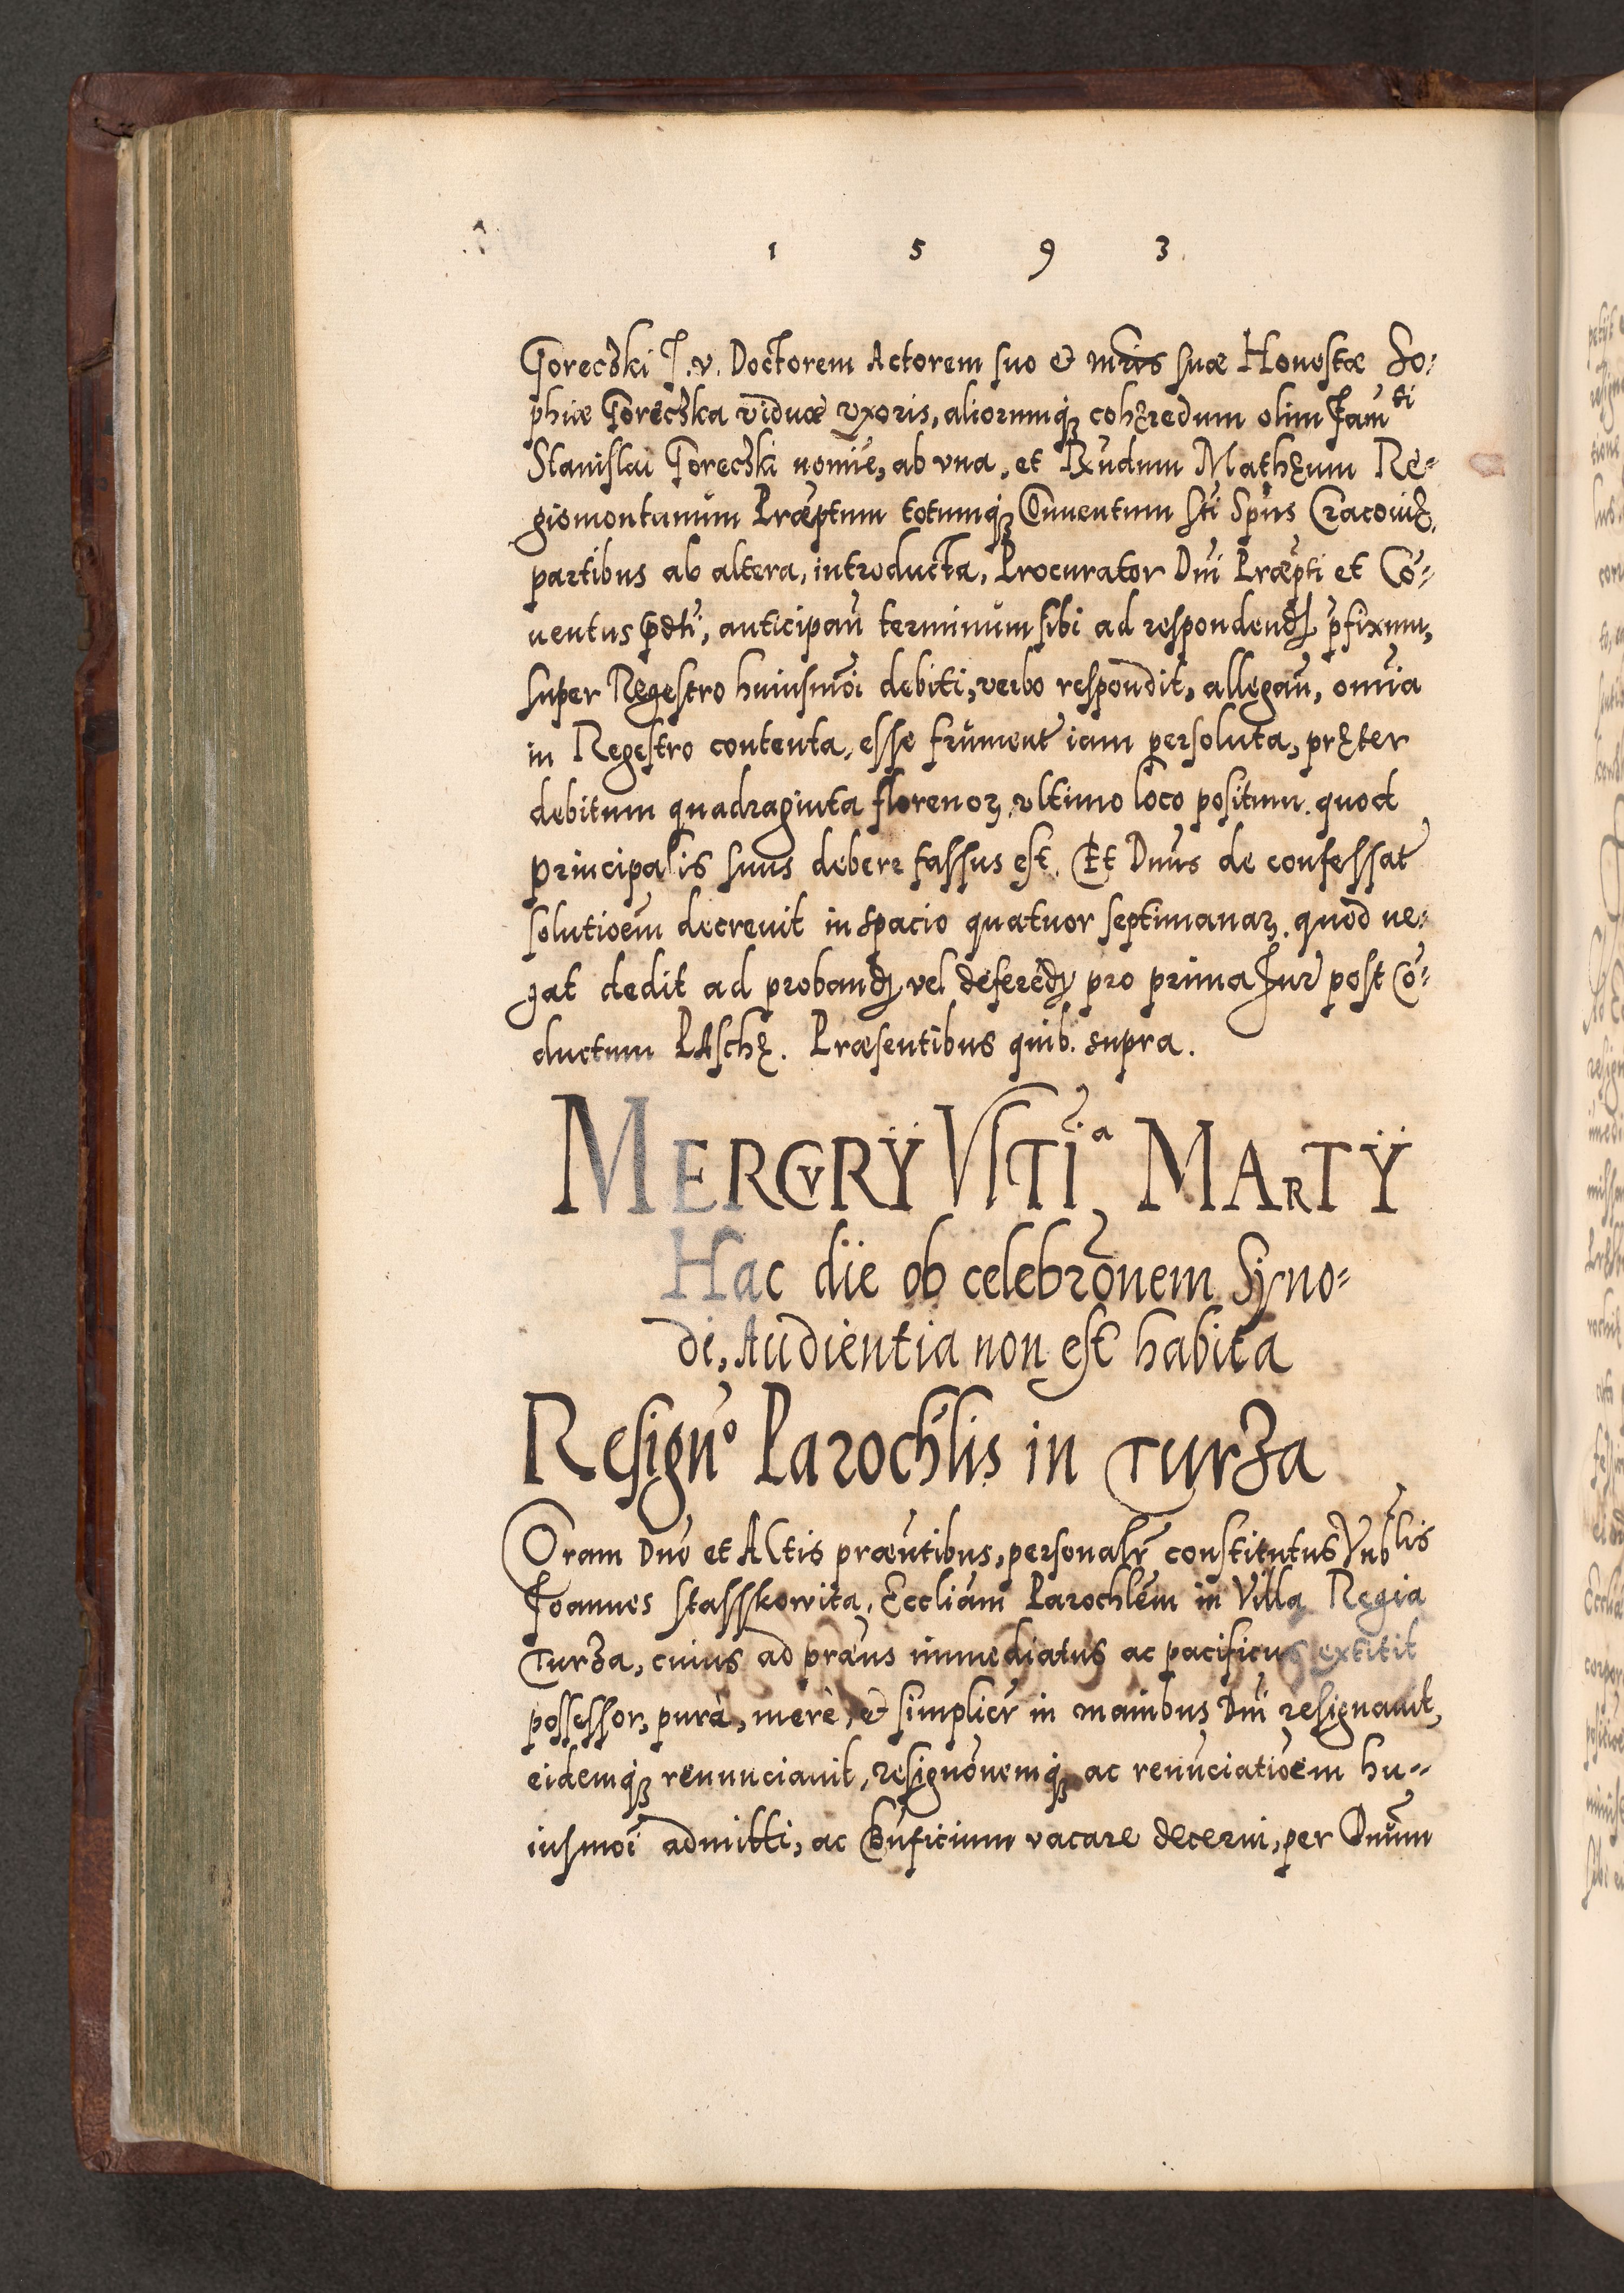 1 5 9 3
Goreczki J. v. Doctorem Actorem suo et mris suæ Honestæ So-
phiæ Goreczka viduæ vxoris, aliorumq; cohęredum olim Fam̃ti
Stanislai Goreczki nomĩe, ab vna, et Rxũdum Mathęum Re-
giomontanum Præp̃tum totumq; Conuentum Sti Sp̃us Cracouię
partibus ab altera, introducta, Procurator Dñi Præp̃ti et Cõ-
uentus p̃dti, anticipañ terminum sibi ad respondend p̃fixum,
super Regestro huiusmõi debiti, verbo respondit, allegañ, om̃ia
in Regestro contenta, esse frument iam persoluta, pręter
debitum quadraginta florenoꝝ vltimo loco positum. quod
principalis suus debere fassus est. Et Dñus de confessat
solutiõem decreuit in spacio quatuor septimanaꝝ. quod ne-
gat dedit ad proband vel deferẽd pro prima Jur post Cõ-
ductum PAschę. Præsentibus quib. supra.
MERCVRŸ VLTIᵃ MARTŸ
Hac die ob celebrõnem Syno-
di, Audientia non est habita
Resigñº Parochlis in Turza
Coram Dño et Actis præñtibus, personalr̃ constitutus Vñblis
Joannes Stasskowita, Eccliam Parochlem in Villa Regia
Turza, cuius ad præñs immediatus ac pacificus extitit
possessor, purè, merè, et simplicr̃ in manibus Dñi resignauit,
eidemq; renunciauit, resignõnemq; ac renũciatiõem hu-
iusmõi admitti, ac Bñficium vacare decerni, per Dñum